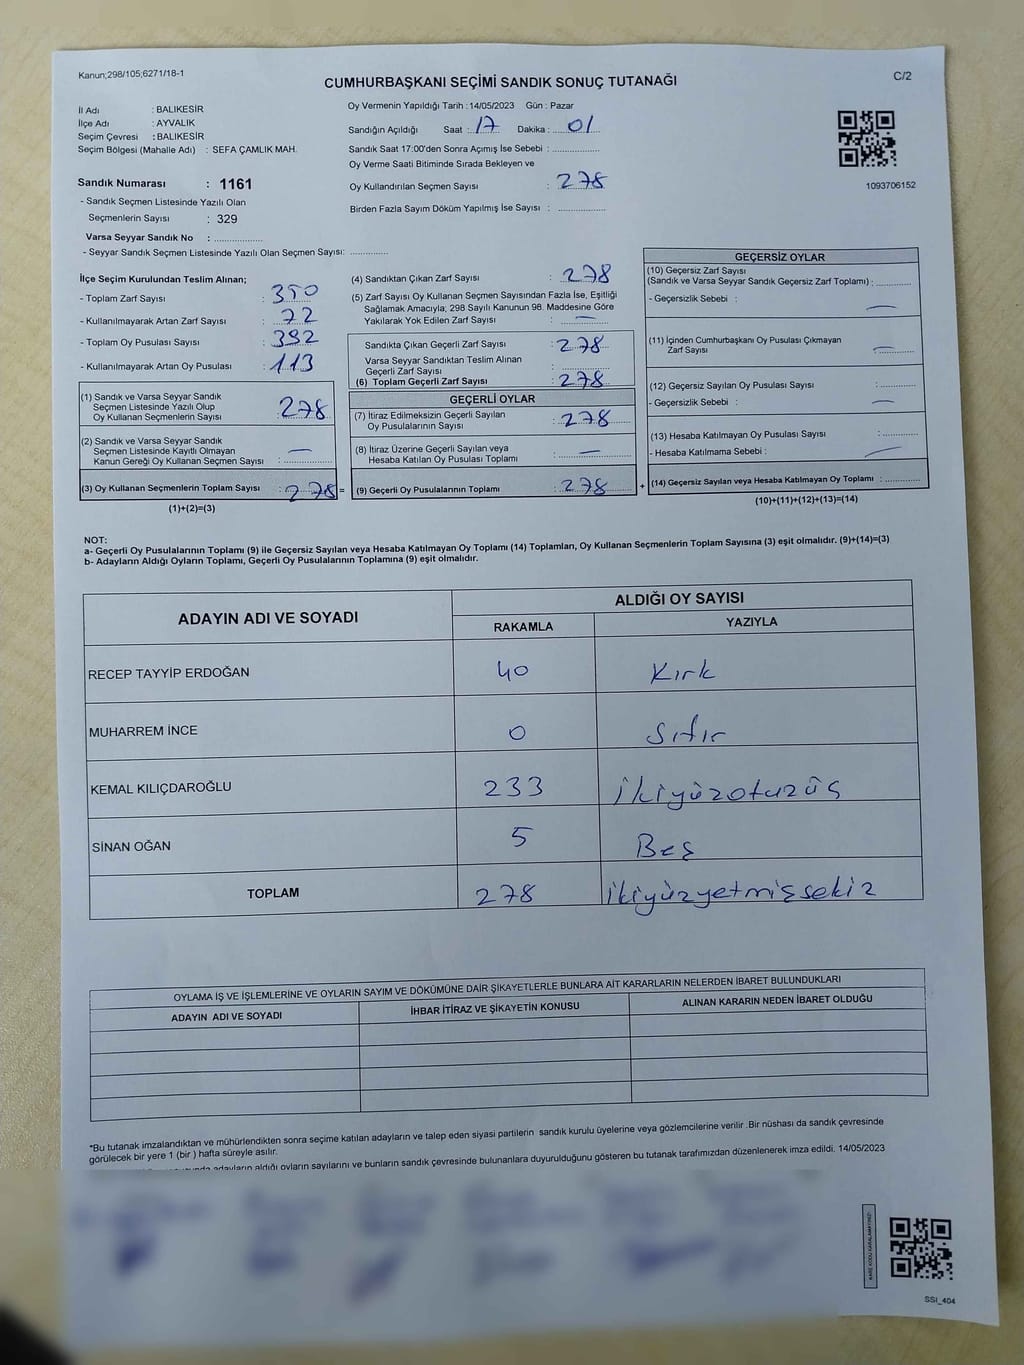 Kanun;298/105;6271/18-1
CUMHURBAŞKANI SEÇİMİ SANDIK SONUÇ TUTANAĞI
C/2
İl Adı : BALIKESİR
İlçe Adı : AYVALIK
Seçim Çevresi : BALIKESİR
Seçim Bölgesi (Mahalle Adı) : SEFA ÇAMLIK MAH.
Sandık Numarası : 1161
- Sandık Seçmen Listesinde Yazılı Olan
Seçmenlerin Sayısı : 329
Varsa Seyyar Sandık No : ................
- Seyyar Sandık Seçmen Listesinde Yazılı Olan Seçmen Sayısı: ............
Oy Vermenin Yapıldığı Tarih : 14/05/2023 Gün : Pazar
Sandığın Açıldığı Saat : 17 Dakika : 01
Sandık Saat 17:00'den Sonra Açımış İse Sebebi : ................
Oy Verme Saati Bitiminde Sırada Bekleyen ve
Oy Kullandırılan Seçmen Sayısı : 278
Birden Fazla Sayım Döküm Yapılmış İse Sayısı : ................
1093706152
İlçe Seçim Kurulundan Teslim Alınan;
- Toplam Zarf Sayısı : 350
- Kullanılmayarak Artan Zarf Sayısı : 72
- Toplam Oy Pusulası Sayısı : 392
- Kullanılmayarak Artan Oy Pusulası : 113
(1) Sandık ve Varsa Seyyar Sandık
Seçmen Listesinde Yazılı Olup
Oy Kullanan Seçmenlerin Sayısı : 278
(2) Sandık ve Varsa Seyyar Sandık
Seçmen Listesinde Kayıtlı Olmayan
Kanun Gereği Oy Kullanan Seçmen Sayısı : —
(3) Oy Kullanan Seçmenlerin Toplam Sayısı : 278 =
(1)+(2)=(3)
(4) Sandıktan Çıkan Zarf Sayısı : 278
(5) Zarf Sayısı Oy Kullanan Seçmen Sayısından Fazla İse, Eşitliği
Sağlamak Amacıyla; 298 Sayılı Kanunun 98. Maddesine Göre
Yakılarak Yok Edilen Zarf Sayısı : —
Sandıkta Çıkan Geçerli Zarf Sayısı : 278
Varsa Seyyar Sandıktan Teslim Alınan
Geçerli Zarf Sayısı : ............
(6) Toplam Geçerli Zarf Sayısı : 278
GEÇERLİ OYLAR
(7) İtiraz Edilmeksizin Geçerli Sayılan
Oy Pusulalarının Sayısı : 278
(8) İtiraz Üzerine Geçerli Sayılan veya
Hesaba Katılan Oy Pusulası Toplamı : —
(9) Geçerli Oy Pusulalarının Toplamı : 278 +
GEÇERSİZ OYLAR
(10) Geçersiz Zarf Sayısı
(Sandık ve Varsa Seyyar Sandık Geçersiz Zarf Toplamı) : ............
- Geçersizlik Sebebi : —
(11) İçinden Cumhurbaşkanı Oy Pusulası Çıkmayan
Zarf Sayısı : —
(12) Geçersiz Sayılan Oy Pusulası Sayısı : ............
- Geçersizlik Sebebi : —
(13) Hesaba Katılmayan Oy Pusulası Sayısı : ............
- Hesaba Katılmama Sebebi : —
(14) Geçersiz Sayılan veya Hesaba Katılmayan Oy Toplamı : ............
(10)+(11)+(12)+(13)=(14)
NOT:
a- Geçerli Oy Pusulalarının Toplamı (9) ile Geçersiz Sayılan veya Hesaba Katılmayan Oy Toplamı (14) Toplamları, Oy Kullanan Seçmenlerin Toplam Sayısına (3) eşit olmalıdır. (9)+(14)=(3)
b- Adayların Aldığı Oyların Toplamı, Geçerli Oy Pusulalarının Toplamına (9) eşit olmalıdır.
ADAYIN ADI VE SOYADI ALDIĞI OY SAYISI
RAKAMLA YAZIYLA
RECEP TAYYİP ERDOĞAN 40 Kırk
MUHARREM İNCE 0 Sıfır
KEMAL KILIÇDAROĞLU 233 ikiyüzotuzüç
SİNAN OĞAN 5 Beş
TOPLAM 278 ikiyüzyetmişsekiz
OYLAMA İŞ VE İŞLEMLERİNE VE OYLARIN SAYIM VE DÖKÜMÜNE DAİR ŞİKAYETLERLE BUNLARA AİT KARARLARIN NELERDEN İBARET BULUNDUKLARI
ADAYIN ADI VE SOYADI İHBAR İTİRAZ VE ŞİKAYETİN KONUSU ALINAN KARARIN NEDEN İBARET OLDUĞU
*Bu tutanak imzalandıktan ve mühürlendikten sonra seçime katılan adayların ve talep eden siyasi partilerin sandık kurulu üyelerine veya gözlemcilerine verilir .Bir nüshası da sandık çevresinde
görülecek bir yere 1 (bir ) hafta süreyle asılır.
adayların aldığı oyların sayılarını ve bunların sandık çevresinde bulunanlara duyurulduğunu gösteren bu tutanak tarafımızdan düzenlenerek imza edildi. 14/05/2023
KARE KODU KARALAMAYINIZ!
SSI_404